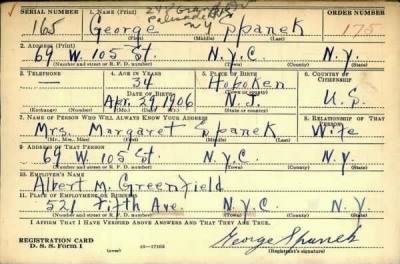 SERIAL NUMBER 1. NAME (Print) ORDER NUMBER
165 George Spanek 175
(First) (Middle) (Last)
2. ADDRESS (Print)
69 W. 105 St. N.Y.C. N.Y.
(Number and street or R. F. D. number) (Town) (County) (State)
3. TELEPHONE 4. AGE IN YEARS 5. PLACE OF BIRTH 6. COUNTRY OF CITIZENSHIP
— 34 Hoboken
DATE OF BIRTH (Town or county)
Apr. 29, 1906 N.J. U.S.
(Exchange) (Number) (Mo.) (Day) (Yr.) (State or country)
7. NAME OF PERSON WHO WILL ALWAYS KNOW YOUR ADDRESS 8. RELATIONSHIP OF THAT PERSON
Mrs. Margaret Spanek Wife
(Mr., Mrs., Miss) (First) (Middle) (Last)
9. ADDRESS OF THAT PERSON
69 W. 105 St. N.Y.C. N.Y.
(Number and street or R. F. D. number) (Town) (County) (State)
10. EMPLOYER'S NAME
Albert M. Greenfield
11. PLACE OF EMPLOYMENT OR BUSINESS
521 Fifth Ave. N.Y.C. N.Y.
(Number and street or R. F. D. number) (Town) (County) (State)
I AFFIRM THAT I HAVE VERIFIED ABOVE ANSWERS AND THAT THEY ARE TRUE.
REGISTRATION CARD
D. S. S. Form 1 (over) George Spanek
(Registrant's signature)